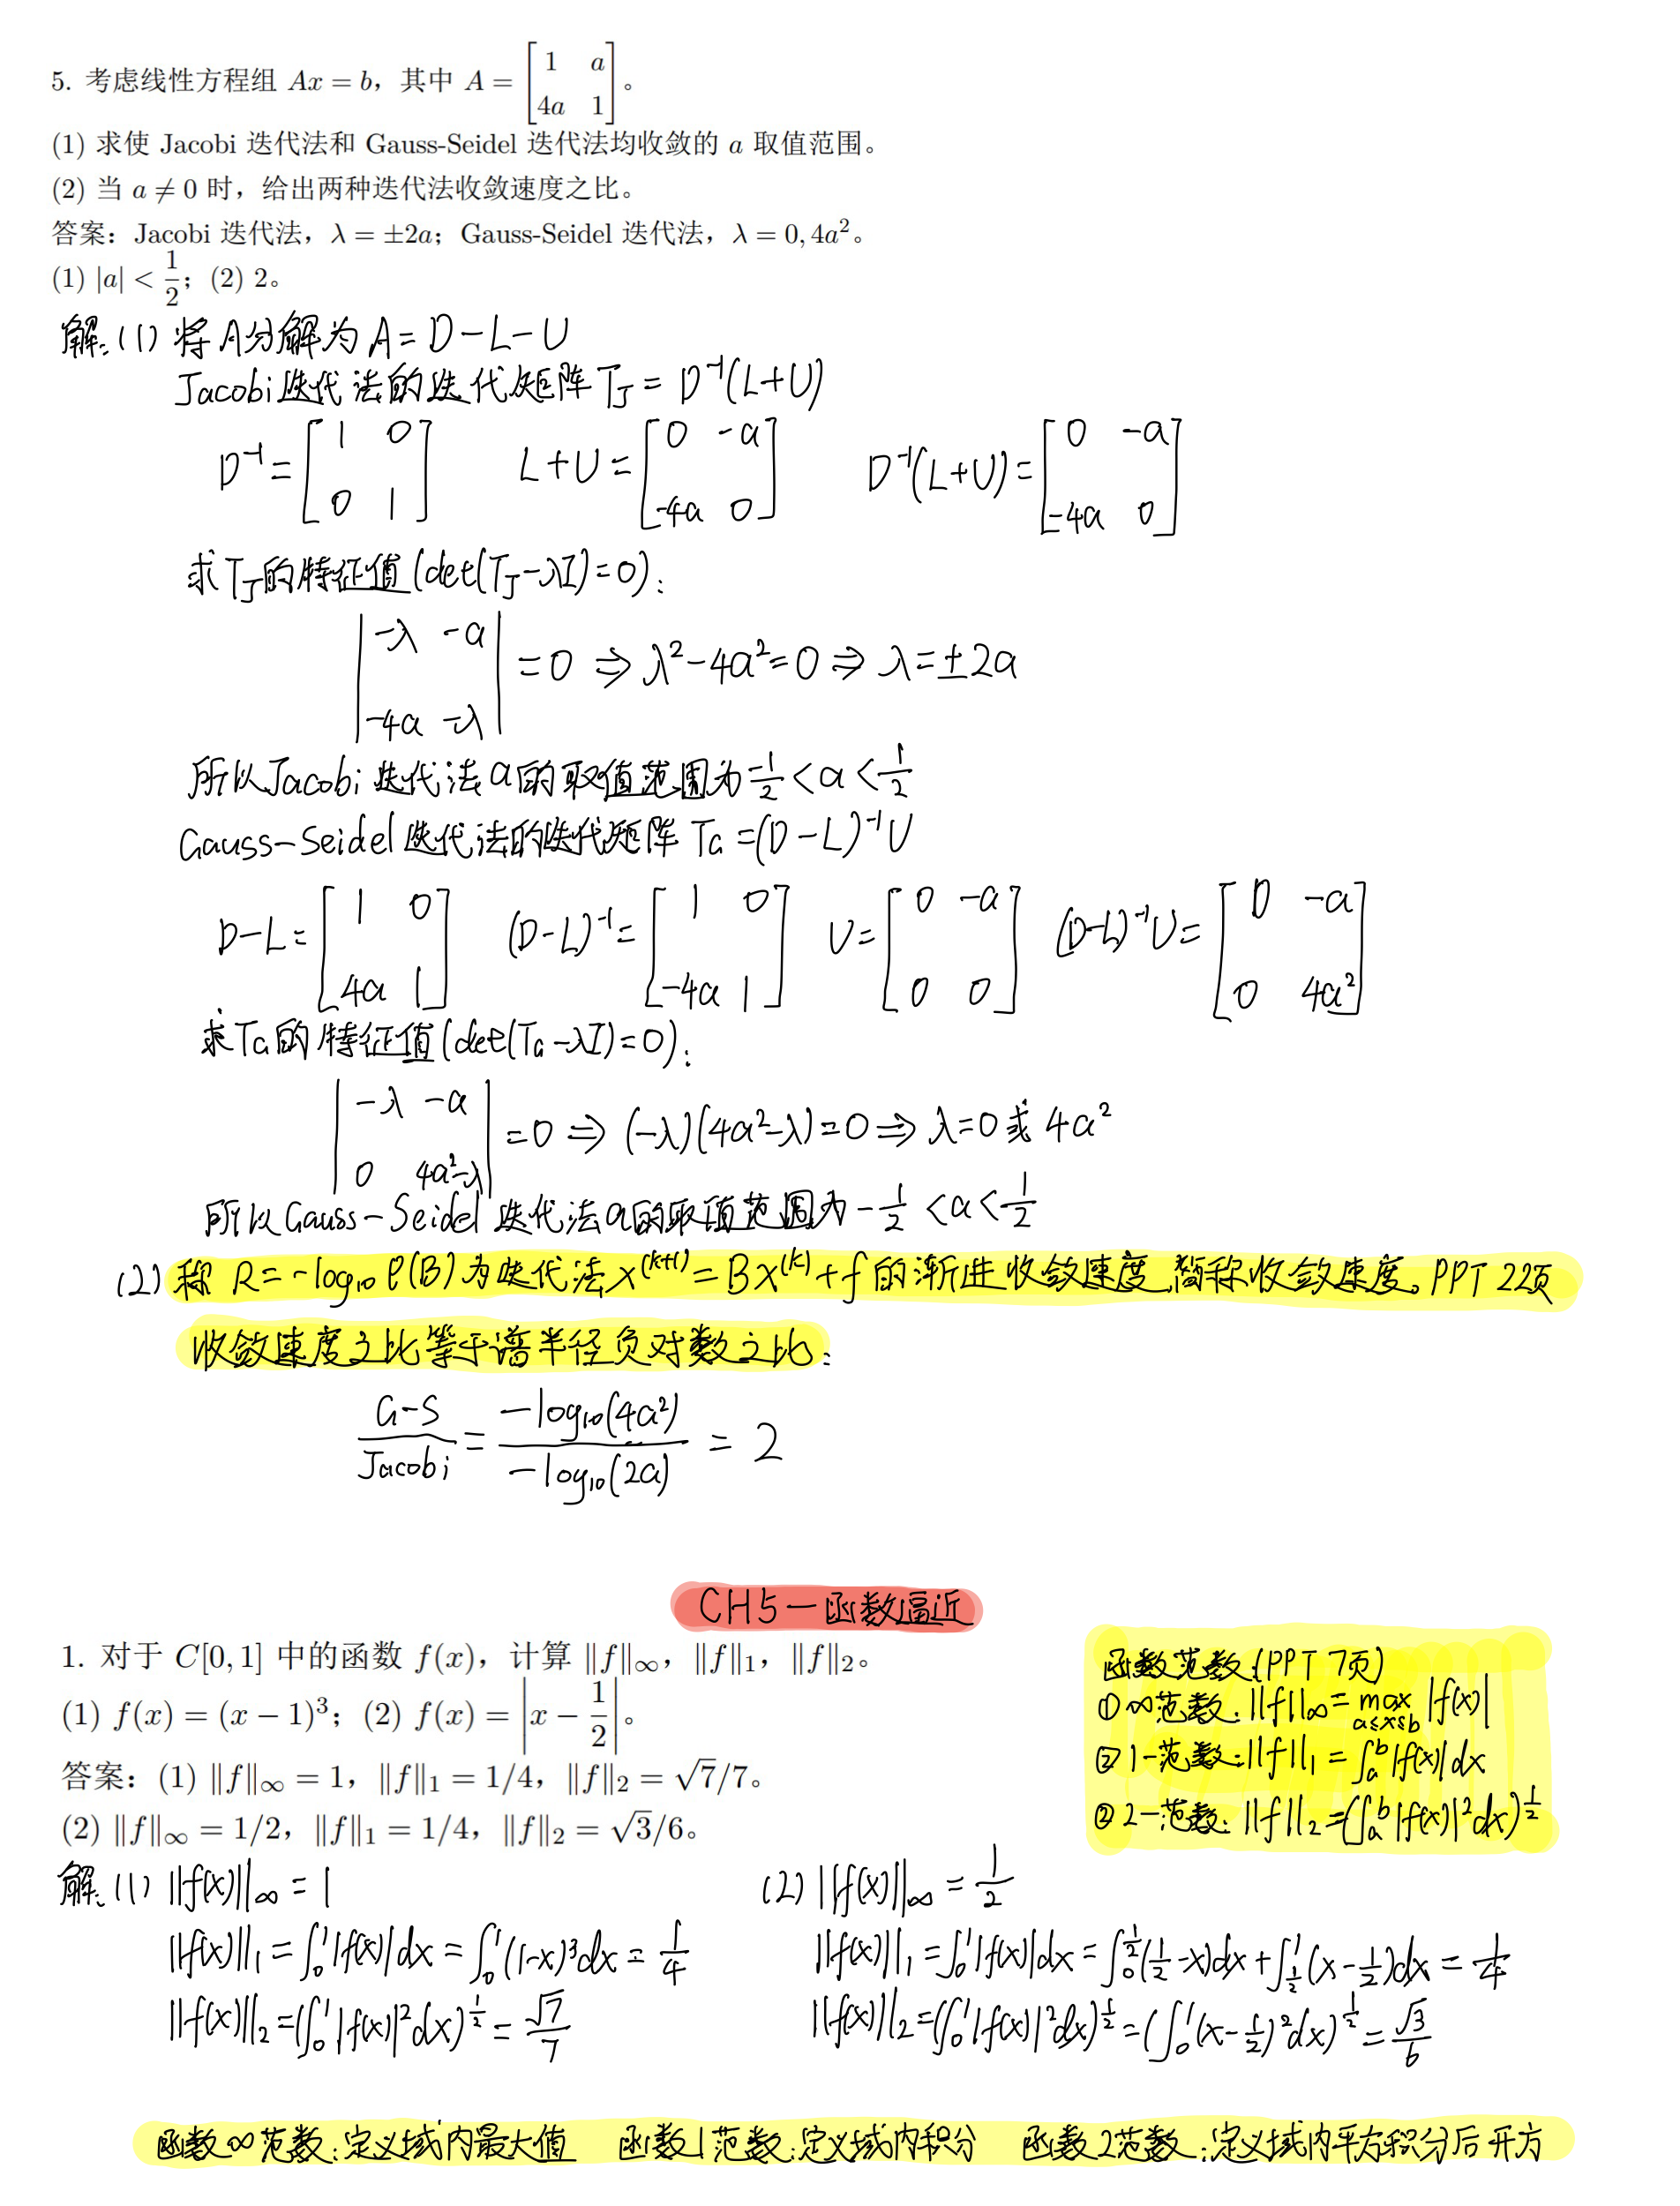 5. 考虑线性方程组 Ax = b，其中 A = [1 a; 4a 1]。
(1) 求使 Jacobi 迭代法和 Gauss-Seidel 迭代法均收敛的 a 取值范围。
(2) 当 a ≠ 0 时，给出两种迭代法收敛速度之比。
答案：Jacobi 迭代法，λ = ±2a；Gauss-Seidel 迭代法，λ = 0, 4a²。
(1) |a| < 1/2；(2) 2。
解：(1) 将A分解为 A = D-L-U
Jacobi迭代法的迭代矩阵 T_J = D⁻¹(L+U)
D⁻¹ = [1 0; 0 1]  L+U = [0 -a; -4a 0]  D⁻¹(L+U) = [0 -a; -4a 0]
求T_J的特征值(det(T_J-λI)=0)：
|-λ -a; -4a -λ| = 0 ⇒ λ²-4a²=0 ⇒ λ=±2a
所以Jacobi迭代法a的取值范围为 -1/2 < a < 1/2
Gauss-Seidel迭代法的迭代矩阵 T_G = (D-L)⁻¹U
D-L = [1 0; 4a 1]  (D-L)⁻¹ = [1 0; -4a 1]  U = [0 -a; 0 0]  (D-L)⁻¹U = [0 -a; 0 4a²]
求T_G的特征值(det(T_G-λI)=0)：
|-λ -a; 0 4a²-λ| = 0 ⇒ (-λ)(4a²-λ)=0 ⇒ λ=0或4a²
所以Gauss-Seidel迭代法a的取值范围为 -1/2 < a < 1/2
(2) 称 R=-log₁₀ρ(B)为迭代法x^(k+1)=Bx^(k)+f的渐进收敛速度,简称收敛速度。PPT 22页
收敛速度之比等于谱半径负对数之比：
G-S/Jacobi = -log₁₀(4a²)/-log₁₀(2a) = 2
CH5—函数逼近
1. 对于 C[0,1] 中的函数 f(x)，计算 ‖f‖∞，‖f‖₁，‖f‖₂。
(1) f(x) = (x − 1)³；(2) f(x) = |x − 1/2|。
答案：(1) ‖f‖∞ = 1，‖f‖₁ = 1/4，‖f‖₂ = √7/7。
(2) ‖f‖∞ = 1/2，‖f‖₁ = 1/4，‖f‖₂ = √3/6。
函数范数：(PPT 7页)
①∞范数：||f||∞ = max_{a≤x≤b} |f(x)|
②1-范数：||f||₁ = ∫_a^b |f(x)|dx
③2-范数：||f||₂ = (∫_a^b |f(x)|²dx)^{1/2}
解：(1) ||f(x)||∞ = 1
||f(x)||₁ = ∫₀¹|f(x)|dx = ∫₀¹(1-x)³dx = 1/4
||f(x)||₂ = (∫₀¹|f(x)|²dx)^{1/2} = √7/7
(2) ||f(x)||∞ = 1/2
||f(x)||₁ = ∫₀¹|f(x)|dx = ∫₀^{1/2}(1/2-x)dx + ∫_{1/2}^1(x-1/2)dx = 1/4
||f(x)||₂ = (∫₀¹|f(x)|²dx)^{1/2} = (∫₀¹(x-1/2)²dx)^{1/2} = √3/6
函数∞范数：定义域内最大值  函数1范数：定义域内积分  函数2范数：定义域内平方积分后开方